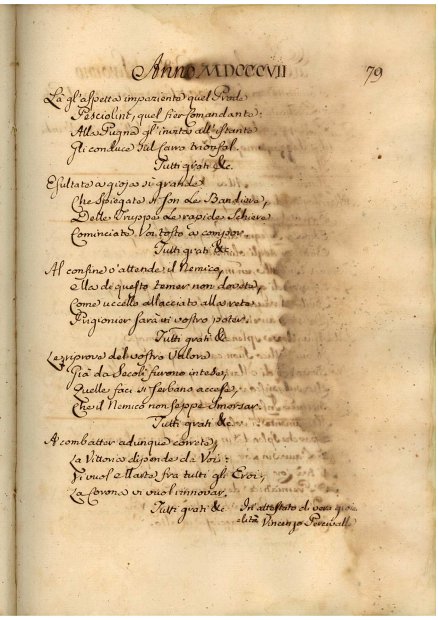 Anno MDCCCVII
79
Là gl'aspetta impaziente quel Prode
Pesciolini, quel fier Comandante:
Alla Pugna gl'invita all'istante
Gli conduce sul carro trionfal.
Tutti grati &c.
Esultate a gioja sì grande
Che spiegate si son le Bandiere,
Delle Truppe le rapide Schiere
Cominciate Voi tosto a compor.
Tutti grati &c
Al confine v'attende il Nemico,
Ma di questo temer non dovete,
Come uccello allacciato alla rete
Prigionier sarà in vostro poter.
Tutti grati &c
Le riprove del vostro Valore
Già da Secoli furono intese,
Quelle faci si serbano accese,
Che il Nemico non seppe smorsar.
Tutti grati &c.
A combatter adunque correte,
La Vittoria dipende da Voi:
Vi vuol Marte fra tutti gli Eroi,
La Corona vi vuol rinnovar,
Tutti grati &c In attestato di vera
Vincenzo Percivalle